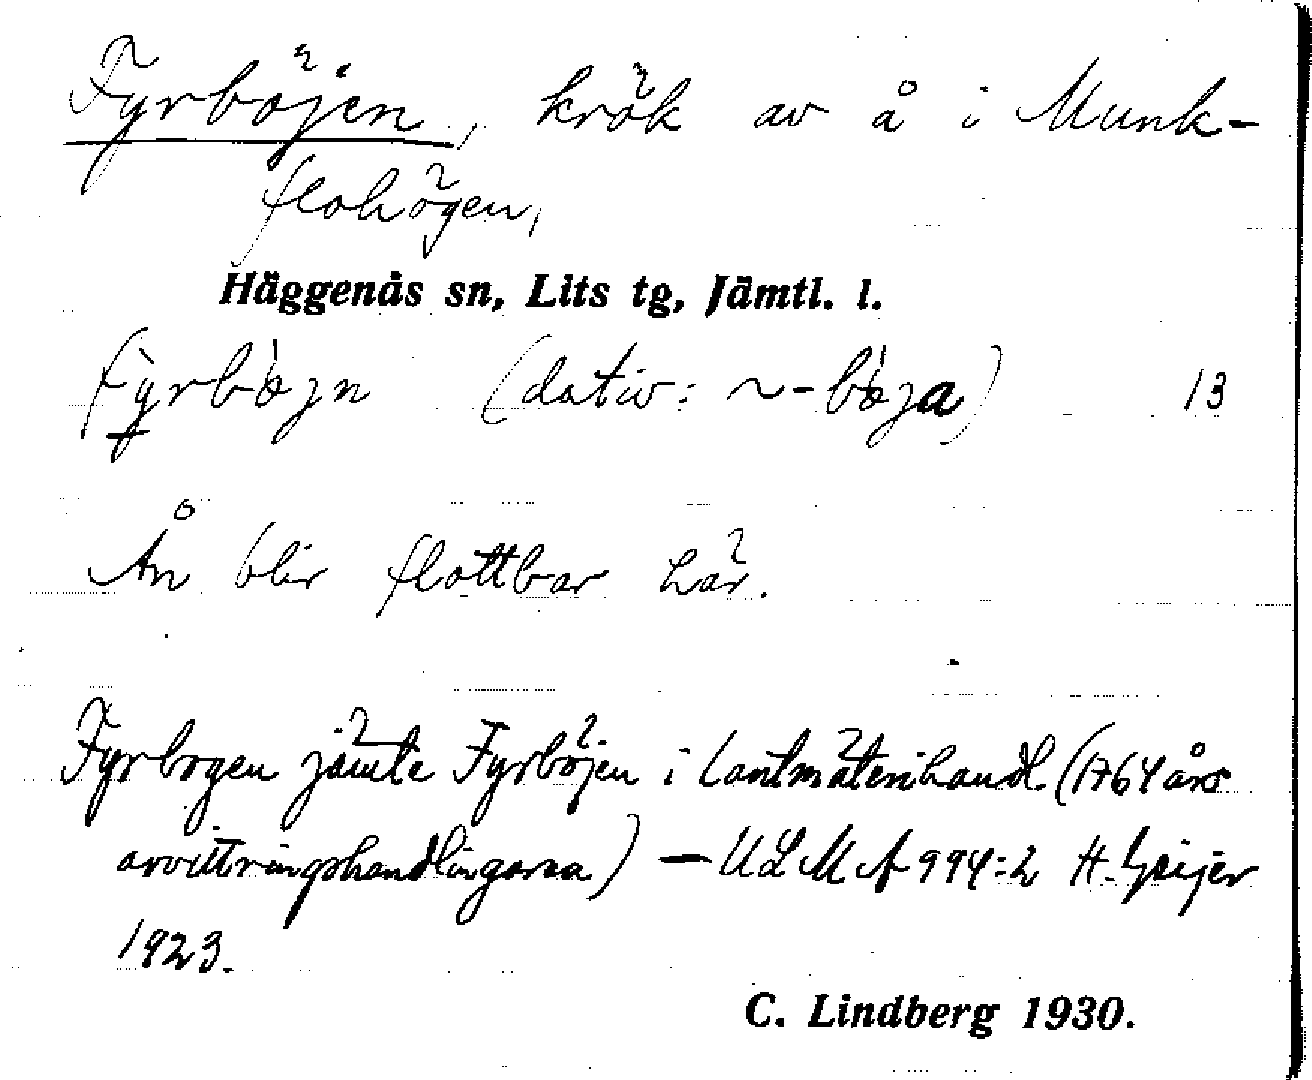 Fyrböjen, krök av å i Munk-
flohögen,
Häggenås sn, Lits tg, Jämtl. l.
fỳrbø̀jn (dativ: ~-bø̀ja) 13
Ån blir flottbar här.
Fyrbogen jämte Fyrböjen i lantmäterihandl. (1764 års
avvittringshandlingarna) — ULMA 994:2 H. Geijer
1923.
C. Lindberg 1930.